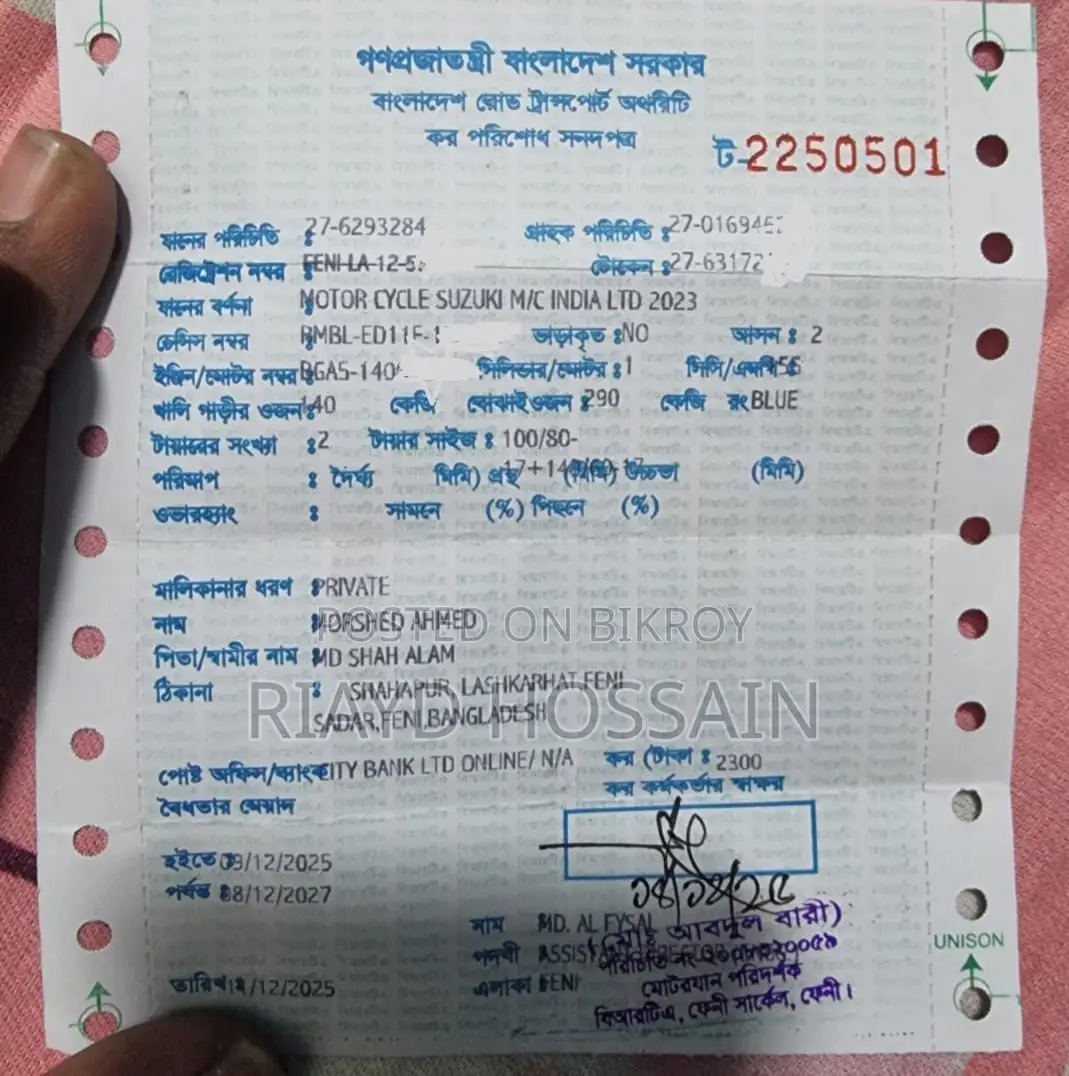 গণপ্রজাতন্ত্রী বাংলাদেশ সরকার
বাংলাদেশ রোড ট্রান্সপোর্ট অথরিটি
কর পরিশোধ সনদপত্র
ট-2250501
যানের পরিচিতি : 27-6293284 গ্রাহক পরিচিতি : 27-016945
রেজিস্ট্রেশন নম্বর : FENI-LA-12-5
টোকেন : 27-63172
যানের বর্ণনা : MOTOR CYCLE SUZUKI M/C INDIA LTD 2023
চেসিস নম্বর : RMBL-ED11F- ভাড়াকৃত : NO আসন : 2
ইঞ্জিন/মোটর নম্বর : BGA5-140 সিলিন্ডার/মোটর : 1 সিসি/এমপি :
খালি গাড়ীর ওজন : 140 কেজি বোঝাই ওজন : 290 কেজি রং : BLUE
টায়ারের সংখ্যা : 2 টায়ার সাইজ : 100/80-
পরিমাপ : দৈর্ঘ্য মিমি) প্রস্থ (মিমি) উচ্চতা (মিমি)
ওভারহ্যাং : সামনে (%) পিছনে (%)
মালিকানার ধরণ : PRIVATE
নাম : MORSHED AHMED
POSTED ON BIKROY
পিতা/স্বামীর নাম : MD SHAH ALAM
ঠিকানা : SHAHAPUR, LASHKARHAT,FENI
SADAR,FENI,BANGLADESH
RIAYD HOSSAIN
পোষ্ট অফিস/ব্যাংক CITY BANK LTD ONLINE/ N/A কর (টাকা : 2300
বৈধতার মেয়াদ কর কর্মকর্তার স্বাক্ষর
হইতে : 09/12/2025
পর্যন্ত : 08/12/2027
১৪/১২/২৫
নাম MD. AL FYSAL
(মোঃ আবদুল বারী)
পদবী ASSISTANT DIRECTOR
পরিচিতি নং
তারিখ : 14/12/2025 এলাকা : FENI
মোটরযান পরিদর্শক
বিআরটিএ, ফেনী সার্কেল, ফেনী।
UNISON